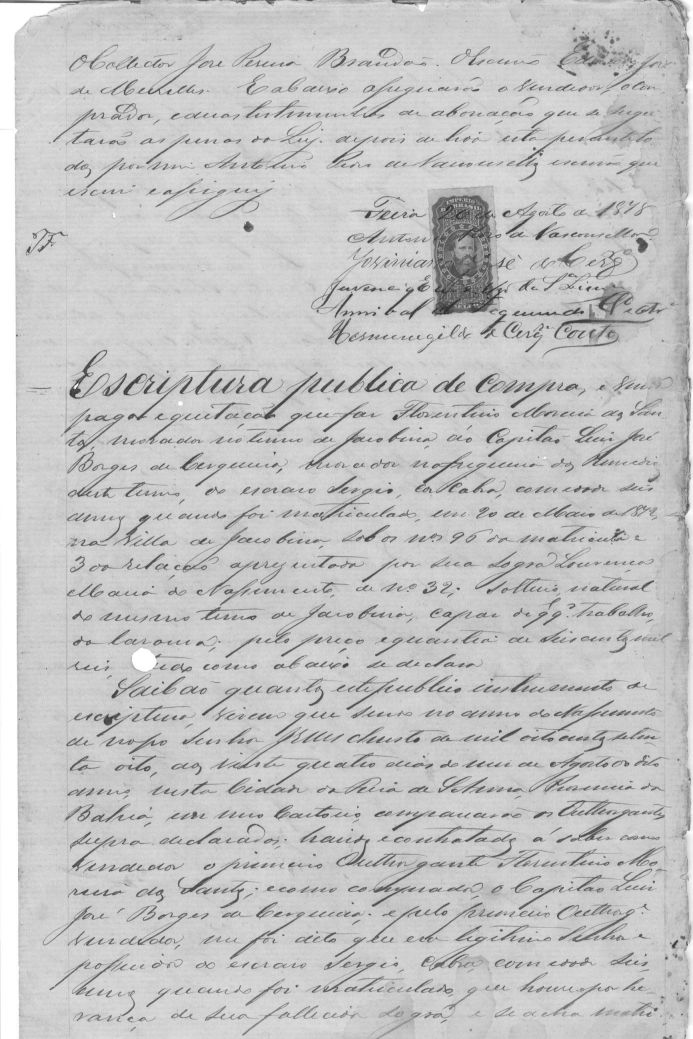 O Collector José Pereira Brandão. O Escrivão José
de Menezes. E abaixo assignarão o vendedor o com
prador, e duas testimunhas de abonação que se sugei
tarão as penas da Ley. depois de lido este perante to
dos, por mim Antonio de Vasconsellos escrivão que
escrevi e assignei
Feira 20 de Agosto de 1878
IMPERIO DO BRASIL
Antonio de Vasconsellos
José de Cerqª
de Sª Lima
Annibal
Hermenegildo de Cerqª Couto
Escriptura publica de compra, e venda
paga e quitação que faz Florentino Moreira dos San
tos, morador no termo de Jacobina, ao Capitão Luis José
Borges de Cerqueira, morador na freguesia dos Remedios
deste termo, do escravo Sergio, cor Cabra, com idade seis
annos quando foi matriculado, em 20 de Maio de 1872,
na Villa de Jacobina, sob os nos 96 da matricula e
3 da relação aprezentada por sua sogra Lourença
Maria do Nascimento, de nº 32; Solteiro, natural
do mesmo termo de Jacobina, capaz de qqª trabalho,
da lavoura; pelo preço e quantia de Seiscentos mil
reis, como abaixo se declara
Saibão quantos este publico instrumento de
escriptura, virem que sendo no anno do Nascimento
de nosso Senhor Jesus Christo de mil oitocentos seten
ta oito, aos vinte quatro dias do mez de Agosto do dito
anno, nesta Cidade da Feira de SAnna, Provincia da
Bahia, em meo Cartorio, comparecerão os Outtorgantes
supra declarados; havidos e contratados á saber como
vendedor o primeiro Outtorgante Florentino Mo
reira dos Santos; e como comprador, o Capitão Luis
José Borges de Cerqueira; e pelo primeiro Outtorgᵉ
vendedor, me foi dito que era legitimo Senhor e
possuidor do escravo Sergio, Cabra com idade seis,
annos quando foi matriculado, que houve por he
rança de sua fallecida Sogra, e se acha matri